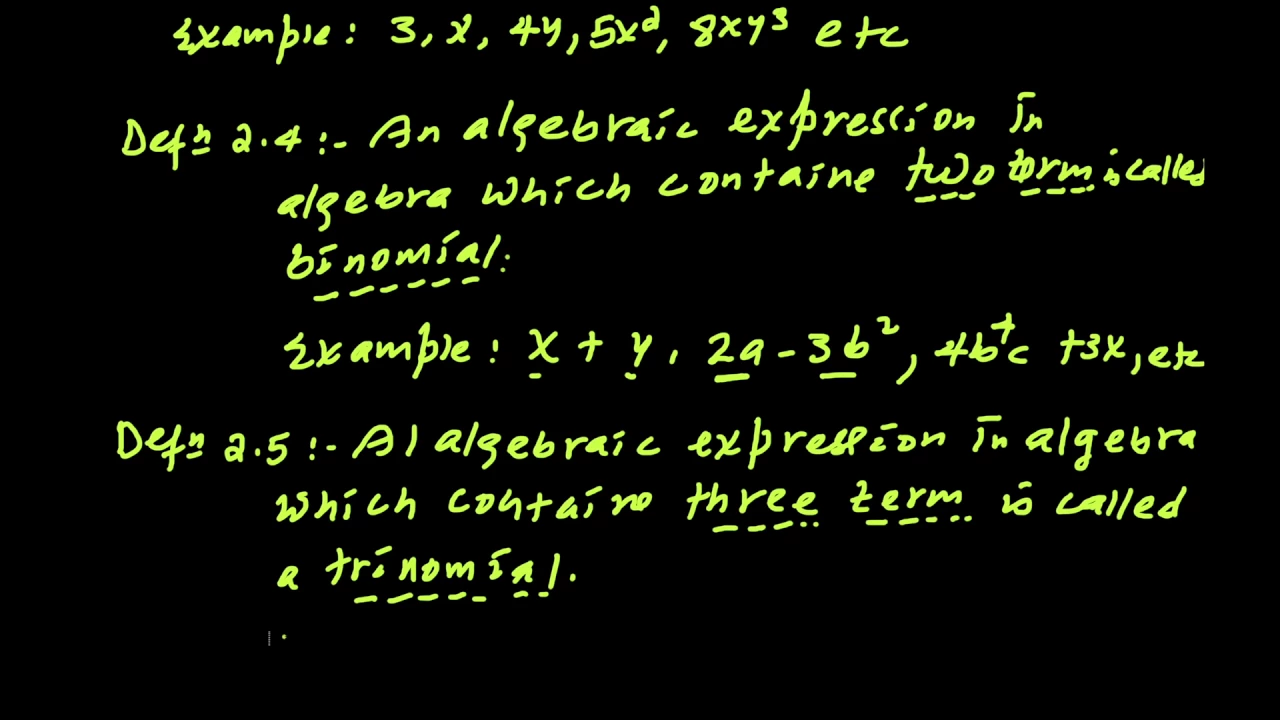 Example: 3, x, 4y, 5x², 8xy³ etc
Defⁿ 2.4 :- An algebraic expression in
algebra which containe two term is called
binomial.
Example: x + y, 2a - 3b², 4b⁺c +3x, etc
Defⁿ 2.5 :- Al algebraic expression in algebra
which contains three term is called
a trinomial.